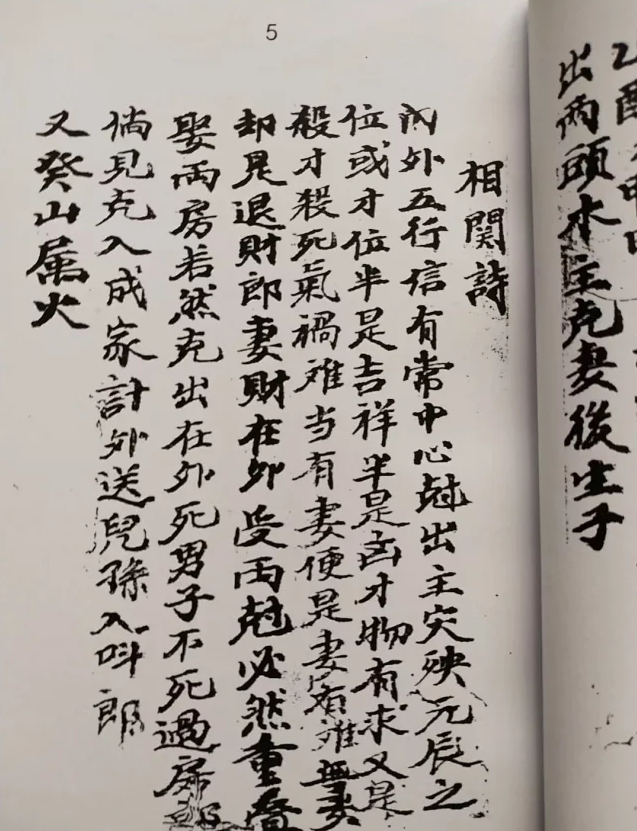 乙酉
出兩頭水主克妻後生子
5
相関詩
內外五行信有常中心尅出主灾殃元辰之
位或才位半是吉祥半是凶才物有求又是
殺才殺死氣禍难当有妻便是妻难無妻
却是退財郎妻財在外受両尅必然重
娶両房若然克出在外死男子不死過房
倘見克入成家計外送兒孫入呌郎
又癸山属火